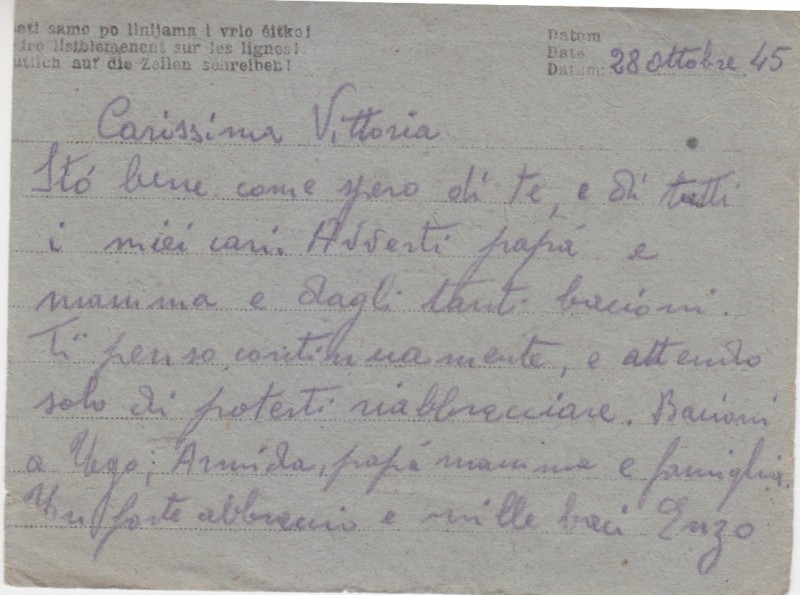 ati samo po linijama i vrlo čitko!
ire lisiblemenent sur les lignes!
utlich auf die Zeilen schreiben!
Datom
Date
Datum: 28 ottobre 45
Carissima Vittoria
Stó bene come spero di te, e di tutti
i miei cari. Avverti papá e
mamma e dagli tanti bacioni.
Ti penso continuamente, e attendo
solo di poterti riabbracciare. Bacioni
a Ugo, Armida, papá mamma e famiglia.
Un forte abbraccio e mille baci Enzo